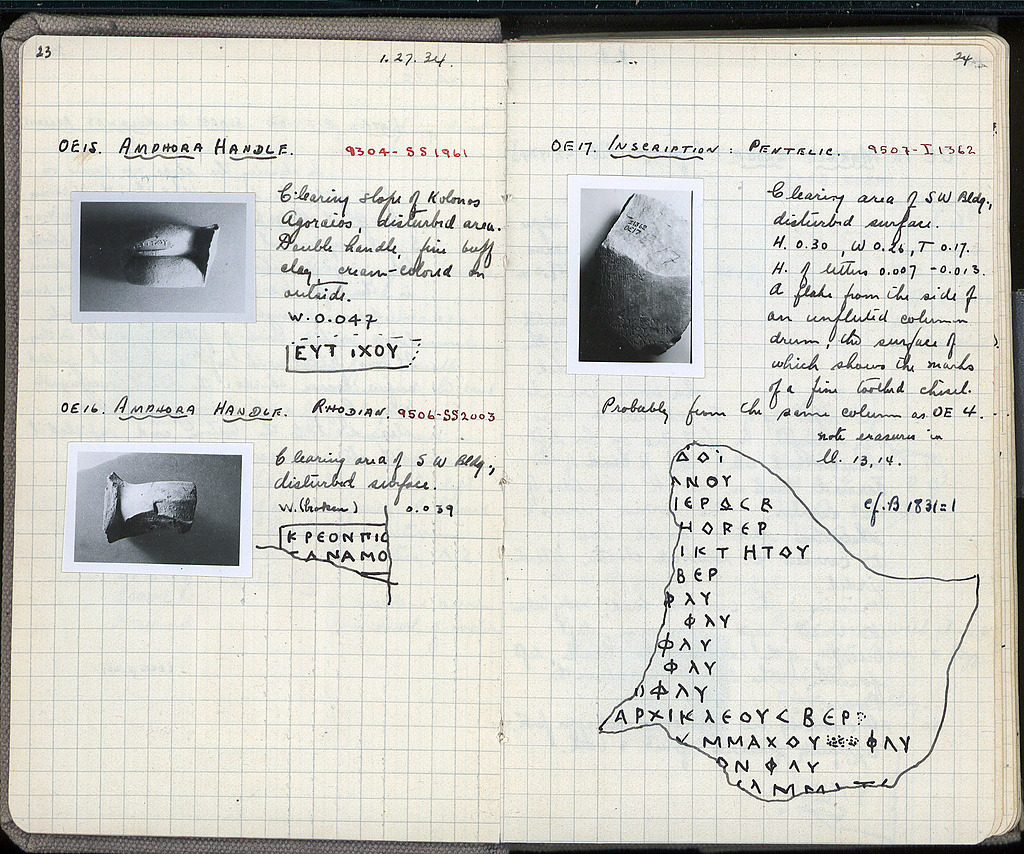 23
1.27.34.
OE15. AMPHORA HANDLE. 9304-SS1961
Clearing slope of Kolonos
Agoraios, disturbed area.
Double handle, fine buff
clay, cream-colored on
outside.
W. 0.047
ΕΥΤ ΙΧΟΥ
OE16. AMPHORA HANDLE. RHODIAN. 9506-SS2003
Clearing area of SW Bldg.,
disturbed surface.
W. (broken) 0.039
ΚΡΕΟΝΠΙΣ
ΠΑΝΑΜΟ
24
OE17. INSCRIPTION: PENTELIC. 9507-I1362
Clearing area of SW Bldg.,
disturbed surface.
H. 0.30, W 0.26, T 0.17.
H. of letters 0.007 - 0.013.
A flake from the side of
an unfluted column
drum, the surface of
which shows the marks
of a fine toothed chisel.
Probably from the same column as OE 4.
note erasures in
ll. 13, 14.
cf. B 1831=1
ΔΟΙ
ΛΝΟΥ
ΙΕΡΩϹΒ
ΗΟΒΕΡ
ΙΚΤΗΤΟΥ
ΒΕΡ
ΦΛΥ
ΦΛΥ
ΦΛΥ
ΦΛΥ
ΦΛΥ
ΑΡΧΙΚΛΕΟΥϹ ΒΕΡ
ΜΜΑΧΟΥ ΦΛΥ
ΟΝ ΦΛΥ